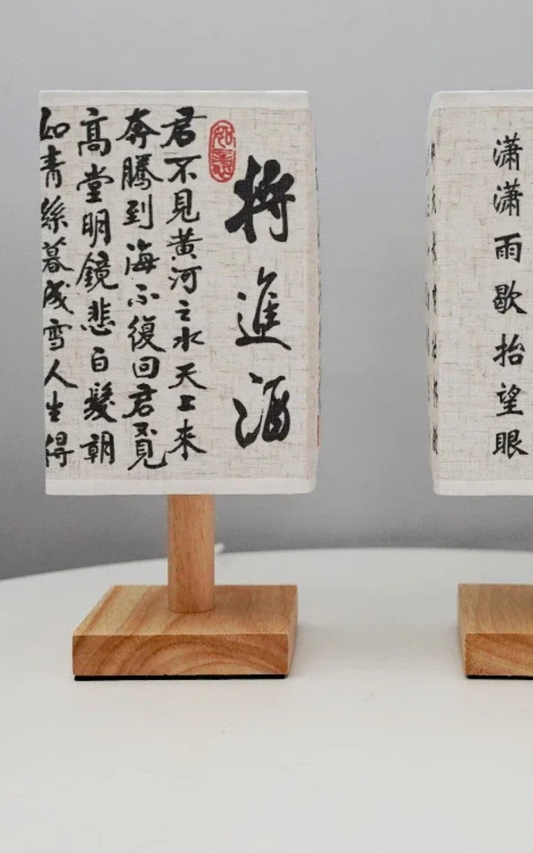 將進酒
君不見黃河之水天上來
奔騰到海不復回君不見
高堂明鏡悲白髮朝
如青絲暮成雪人生得
瀟瀟雨歇抬望眼